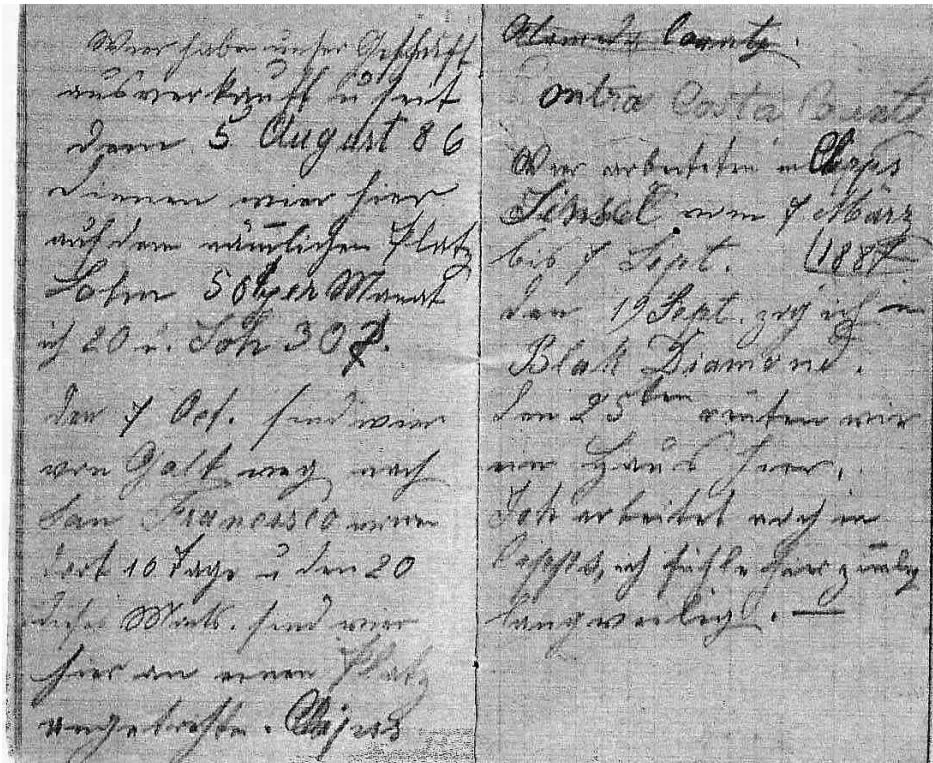 Wier haben unser Geschäft
ausverkauft u seit
dem 5 August 86
dienen wier hier
auf dem nämlichen Platz
Lohn 50 per Monat
ich 20 u. Joh 30 $.
den 7 Oct. sind wier
von Galt weg nach
San Francisco waren
dort 10 Tage u den 20
dieses Mots. sind wier
hier an einen Platz
eingetreten.
Alameda County.
Contra Costa Count
Wier arbeiteten in
vom 7 März
bis 7 Sept. (1887
den 19 Sept. zog ich in
Blak Diamond.
den 25ten wier
ein Haus hier,
Joh arbeitet noch in
ich fühle hier ziemlich
langweilig. —